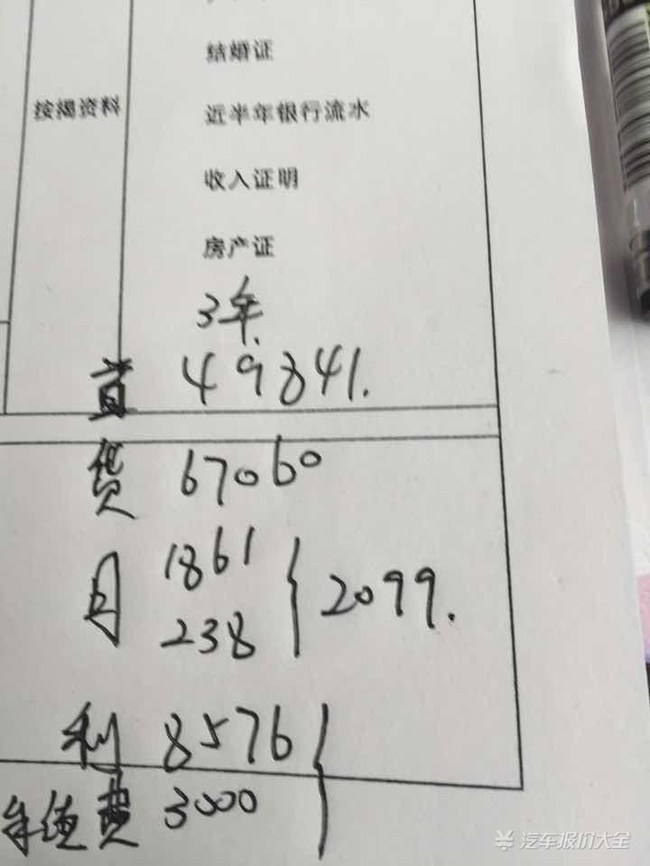 结婚证
按揭资料
近半年银行流水
收入证明
房产证
3年.
首 49841.
贷 67060
月 1861
238
2099.
利 8576
手续费 3000
汽车报价大全